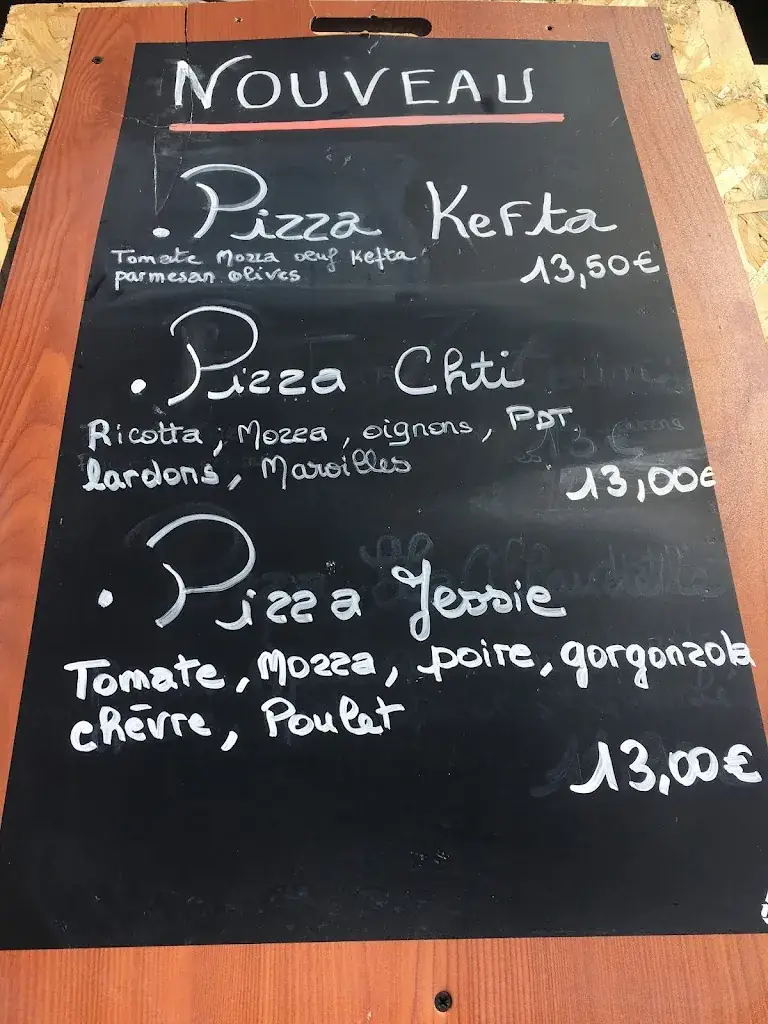 NOUVEAU
. Pizza Kefta
Tomate Mozza oeuf Kefta
parmesan olives
13,50€
. Pizza Chti
Ricotta, Mozza, oignons, PDT
lardons, Maroilles
13,00€
. Pizza Jessie
Tomate, Mozza, poire, gorgonzola
chèvre, Poulet
13,00€